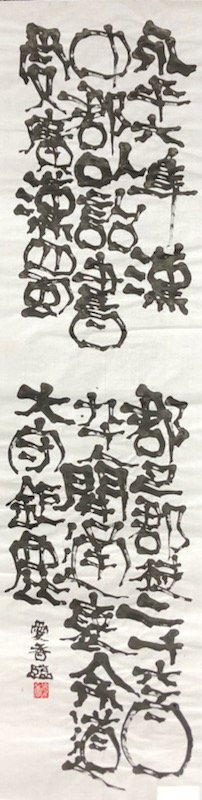 永平六年漢
中郡以詔書
受廣漢蜀
郡巴郡徒二千六百
九十人開通褒余道
太守鉅鹿
愛香臨